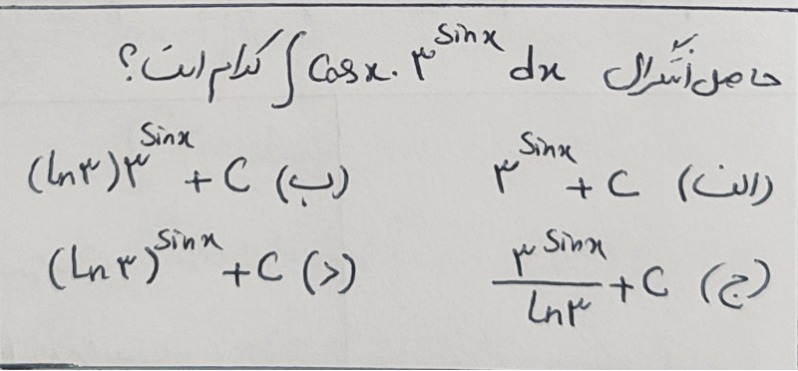 حاصل انتگرال ∫ Cosx . ۳^Sinx dx کدام است؟
الف) ۳^Sinx + C ب) (ln۳)۳^Sinx + C
ج) ۳^Sinx / Ln۳ + C د) (Ln۳)^Sinx + C